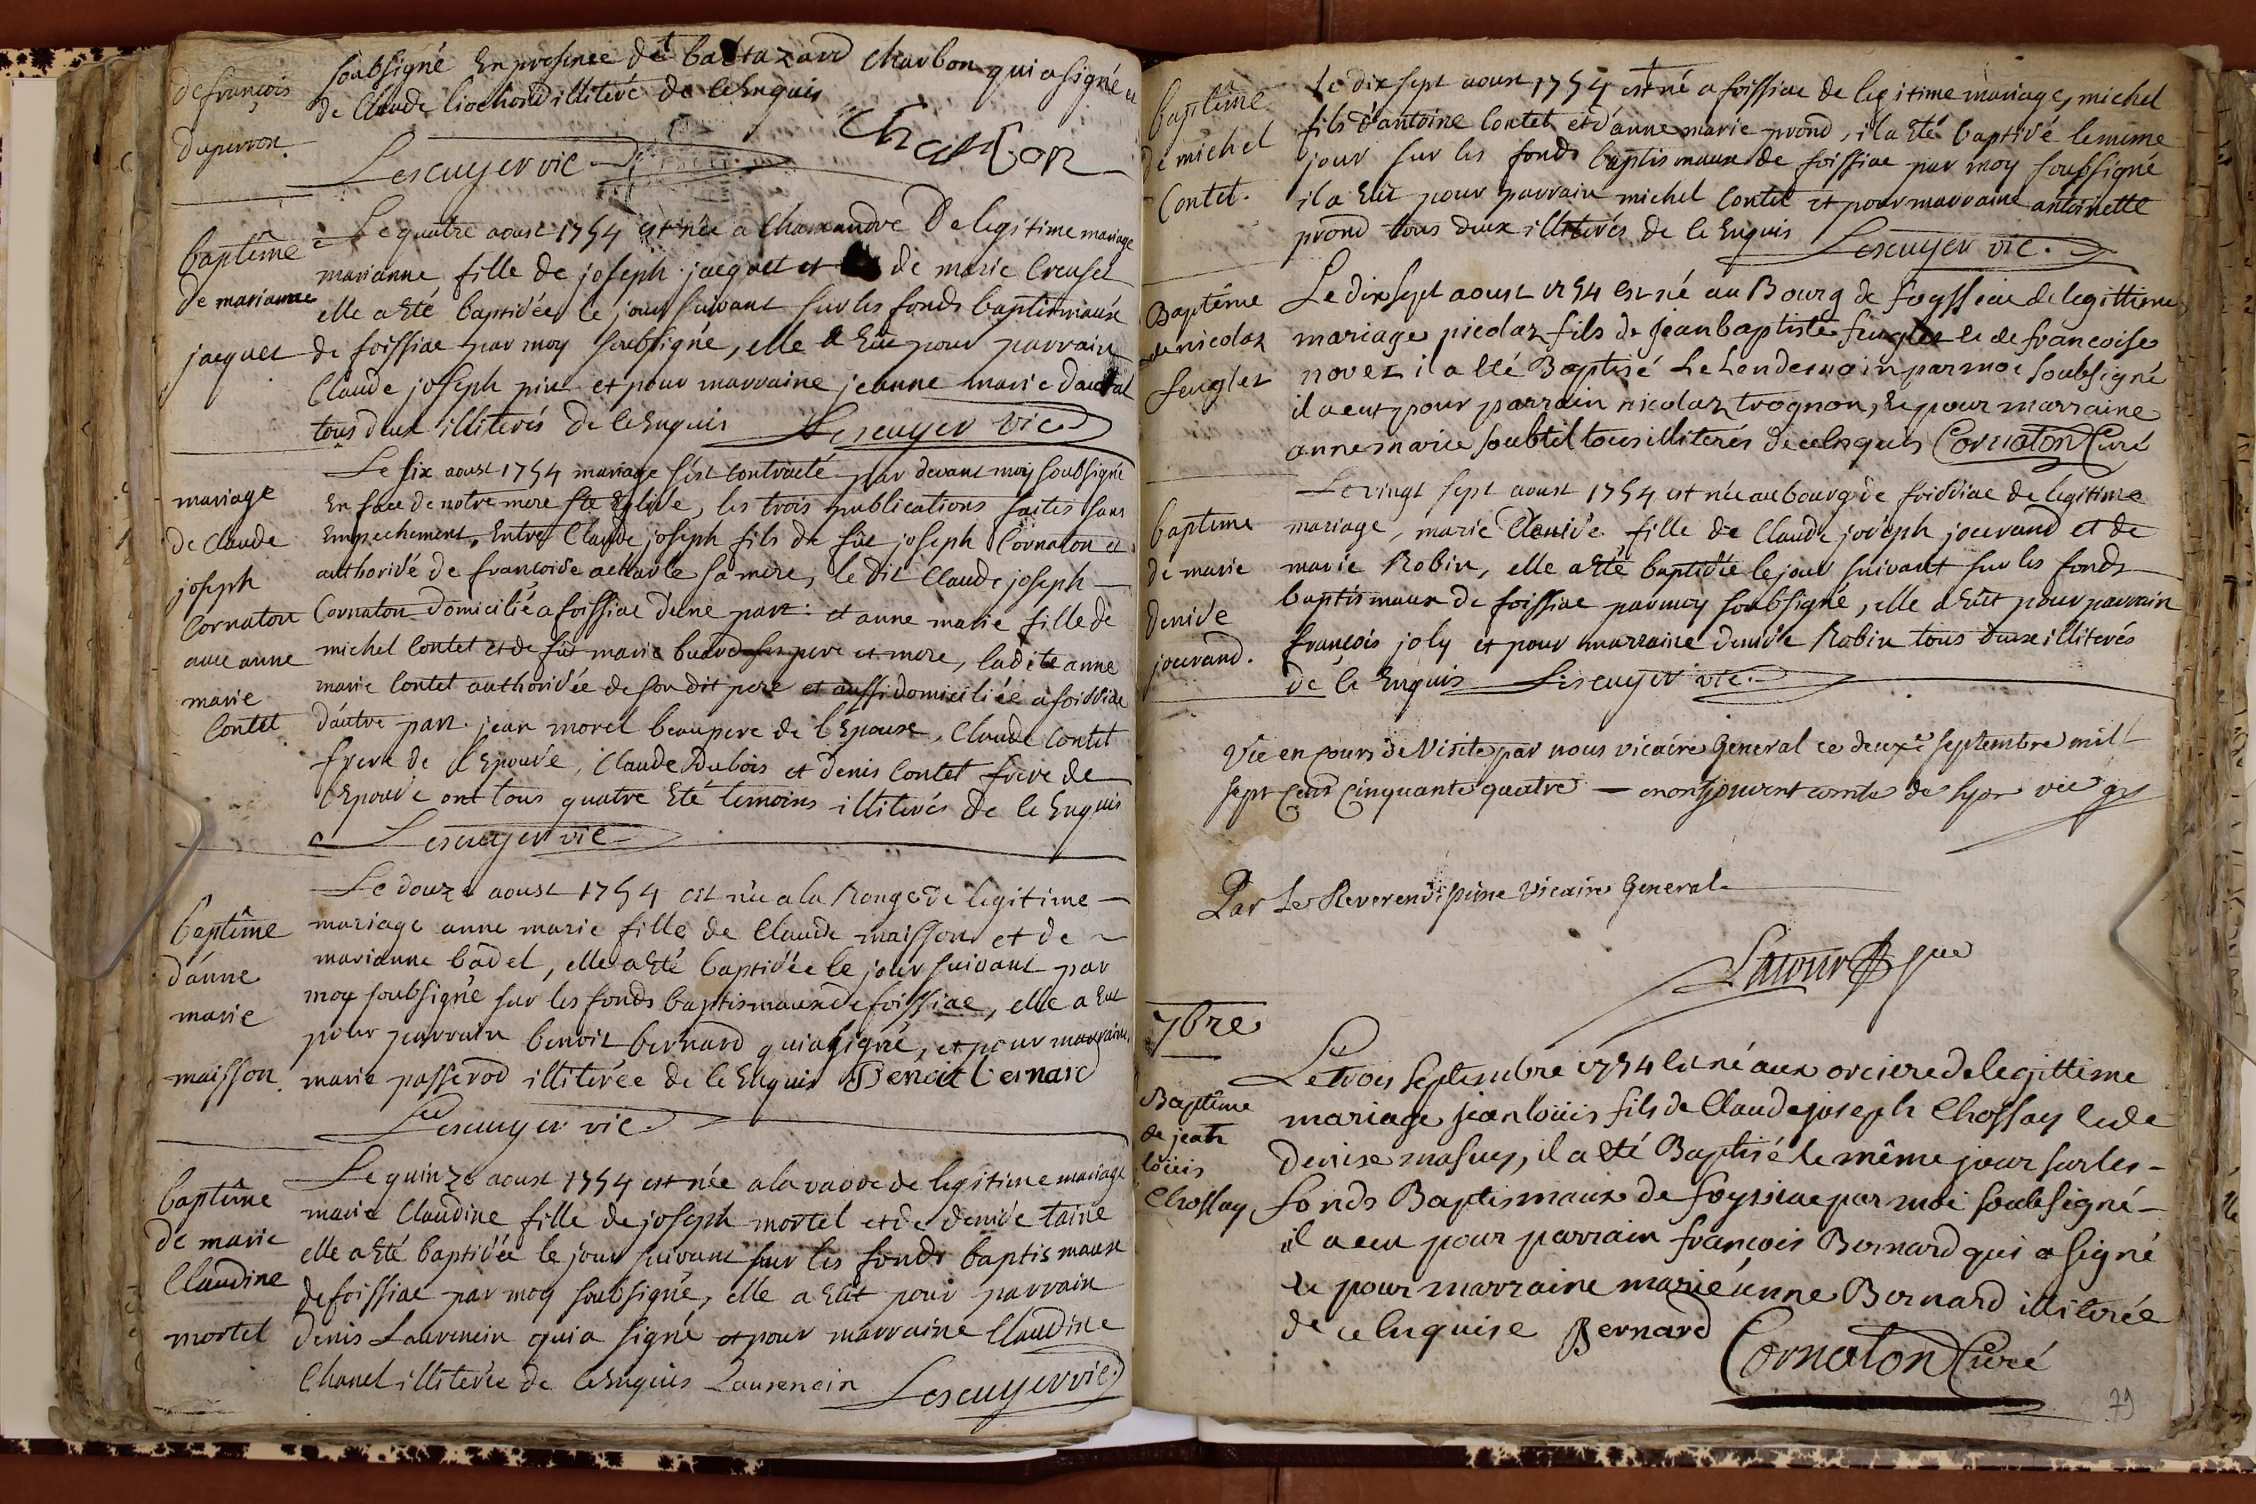 de françois
duperron.
soubsigné En presence de baltazard charbon qui a signé et
de Claude liochond illiteré de ce Enquis
charbon
Lescuyer vic
baptême
de marianne
jacquet
Le quatre aoust 1754 est née a Chamandre de legitime mariage
marianne fille de joseph jacquet et de marie Creuset
elle a Eté baptisée le jour suivant sur les fonds baptismaux
de foissiac par moy soubsigné, elle a Eüe pour parrain
Claude joseph piu et pour marraine jeanne marie daudal
tous deux illiterés de ce Enquis Lescuyer vic
mariage
de Claude
joseph
Cornaton
avec anne
marie
Contet
Le six aoust 1754 mariage s'est contracté par devant moy soubsigné
En face de notre mere ste Eglise, les trois publications faites sans
Empechement, Entre Claude joseph fils de fûe joseph Cornaton et
authorisé de francoise acharle sa mere, le dit Claude joseph
Cornaton domicilié a foissiac d'une part : et anne marie fille de
michel Contet et de fûe marie buard ses pere et mere, la dite anne
marie Contet authorisée de son dit pere et aussi domiciliée a foissiac
d'autre part. jean morel beaupere de l'Epoux, Claude Contet
frere de l'Epousé, Claude Dubois et denis Contet frere de
l'Epousé ont tous quatre Eté temoins illiterés de ce Enquis
Lescuyer vic
baptême
d'anne
marie
maisson.
Le douze aoust 1754 est née a la Ronge de legitime
mariage anne marie fille de Claude maisson et de
marianne badel, elle a Eté baptisée le jour suivant par
moy soubsigné sur les fonds baptismaux de foissiac, elle a Eut
pour parrain benoit bernard qui a signé, et pour marraine
marie passerod illiterée de ce Enquis Benoit bernard
Lescuyer vic
baptême
de marie
Claudine
mortel
Le quinze aoust 1754 est née a la vavre de legitime mariage
marie Claudine fille de joseph mortel et de denise taine
elle a Eté baptisée le jour suivant sur les fonds baptismaux
de foissiac par moy soubsigné, elle a Eüt pour parrain
denis Laurencin qui a signé et pour marraine Claudine
Chanel illiterée de ce Enquis Laurencin Lescuyer vic.
baptême
de michel
Contet.
le dix sept aoust 1754 est né a foissiac de legitime mariage, michel
fils d'antoine Contet et d'anne marie prond, il a Eté baptisé le meme
jour sur les fonds baptismaux de foissiac par moy soubsigné
il a Eut pour parrain michel Contet et pour marraine antoinette
prond tous deux illiterés de ce Enquis Lescuyer vic.
Baptême
de nicolaz
feuglet
Le dix sept aoust 1754 est né au Bourg de foyssiac de legittime
mariage nicolaz fils de jean baptiste feuglet et de francoise
novet il a êté Baptisé le Lendemain par moi soubsigné
il a eut pour parrain nicolaz trognon, et pour marraine
anne marie soubtil tous illiterés de ce Enquis Cornaton Curé
baptême
de marie
denise
jocerand.
Le vingt sept aoust 1754 est née au bourg de foissiac de legitime
mariage, marie denise fille de Claude joseph jocerand et de
marie Robin, elle a Eté baptisée le jour suivant sur les fonds
baptismaux de foissiac par moy soubsigné, elle a Eüt pour parrain
françois joly et pour marraine denise Robin tous deux illiterés
de ce Enquis Lescuyer vic.
Vie en cours de Visite par nous vicaire General ce deuxe septembre mil
sept Cent Cinquante quatre comte de lyon vic g
Par Le Reverendissime vicaire General
Latour
7bre
Baptême
de jean
loüis
Chossay
Le trois septembre 1754 est né aux orciere de legittime
mariage jean loüis fils de Claude joseph Chossay et de
denise masuy, il a eté Baptisé le même jour sur les
fonds Baptismaux de foyssiac par moi soubsigné
il a eu pour parrain françois Bernard qui a signé
et pour marraine marie anne Bernard illiterée
de ce enquise Bernard Cornaton Curé
79